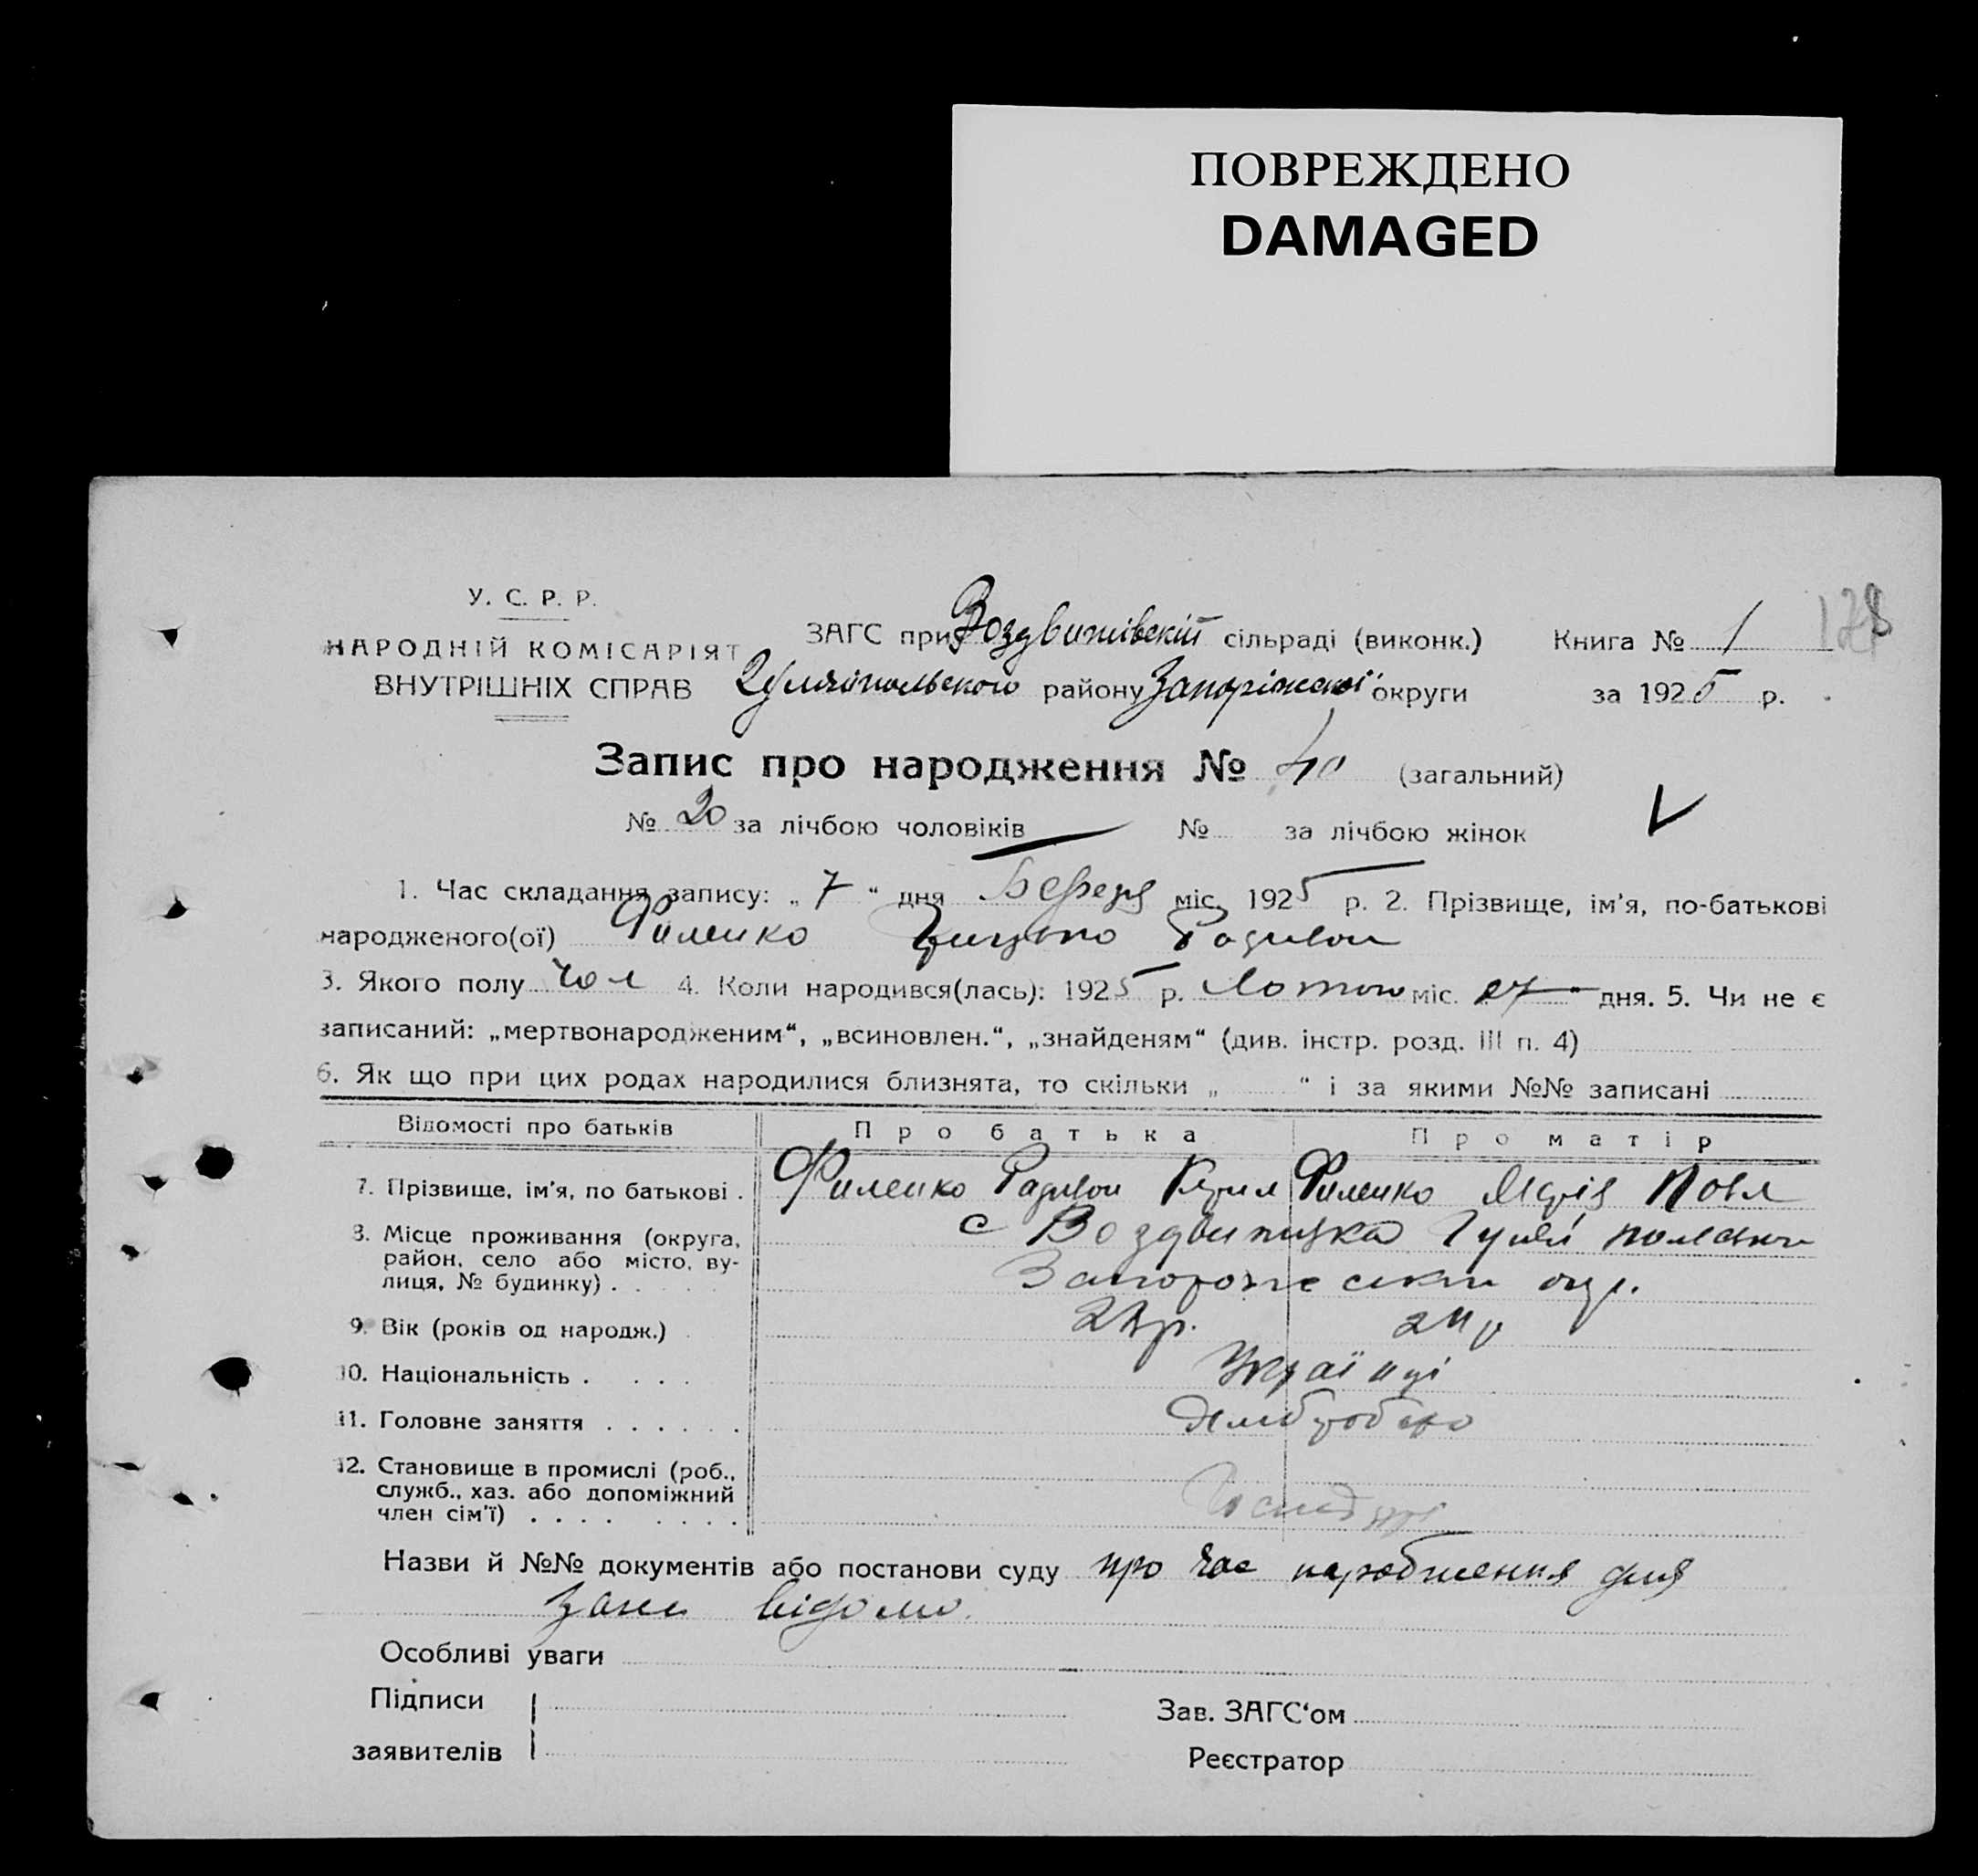 ПОВРЕЖДЕНО
DAMAGED
128
У. С. Р. Р.
НАРОДНІЙ КОМІСАРІЯТ
ВНУТРІШНІХ СПРАВ
ЗАГС при Воздвижівській сільраді (виконк.) Книга № 1
Гуляйпольського району Запоріжської округи за 1925 р.
Запис про народження № 40 (загальний)
№ 20 за лічбою чоловіків № за лічбою жінок
1. Час складання запису: „ 7 “ дня Березня міс. 1925 р. 2. Прізвище, ім'я, по-батькові
народженого(ої) Филенко Радивон
3. Якого полу чол 4. Коли народився(лась): 1925 р. Лютого міс. 27 “ дня. 5. Чи не є
записаний: „мертвонародженим“, „всиновлен.“, „знайденям“ (див. інстр. розд. III п. 4)
6. Як що при цих родах народилися близнята, то скільки „ “ і за якими №№ записані
Відомості про батьків Про батька Про матір
7. Прізвище, ім'я, по батькові . Филенко Радивон Кирил Филенко Марія Павл
8. Місце проживання (округа, с Воздвижка Гуляй
район, село або місто, ву-
лиця, № будинку) . . . . . окр.
9. Вік (років од народж.) . 24 р
10. Національність . . . . Українці
11. Головне заняття . . . . . . Хлібробство
12. Становище в промислі (роб.,
служб., хаз. або допоміжний
член сім'ї) . . . . . . . .
Назви й №№ документів або постанови суду про час народження дня
відомо.
Особливі уваги
Підписи
заявителів
Зав. ЗАГС‘ом
Реєстратор